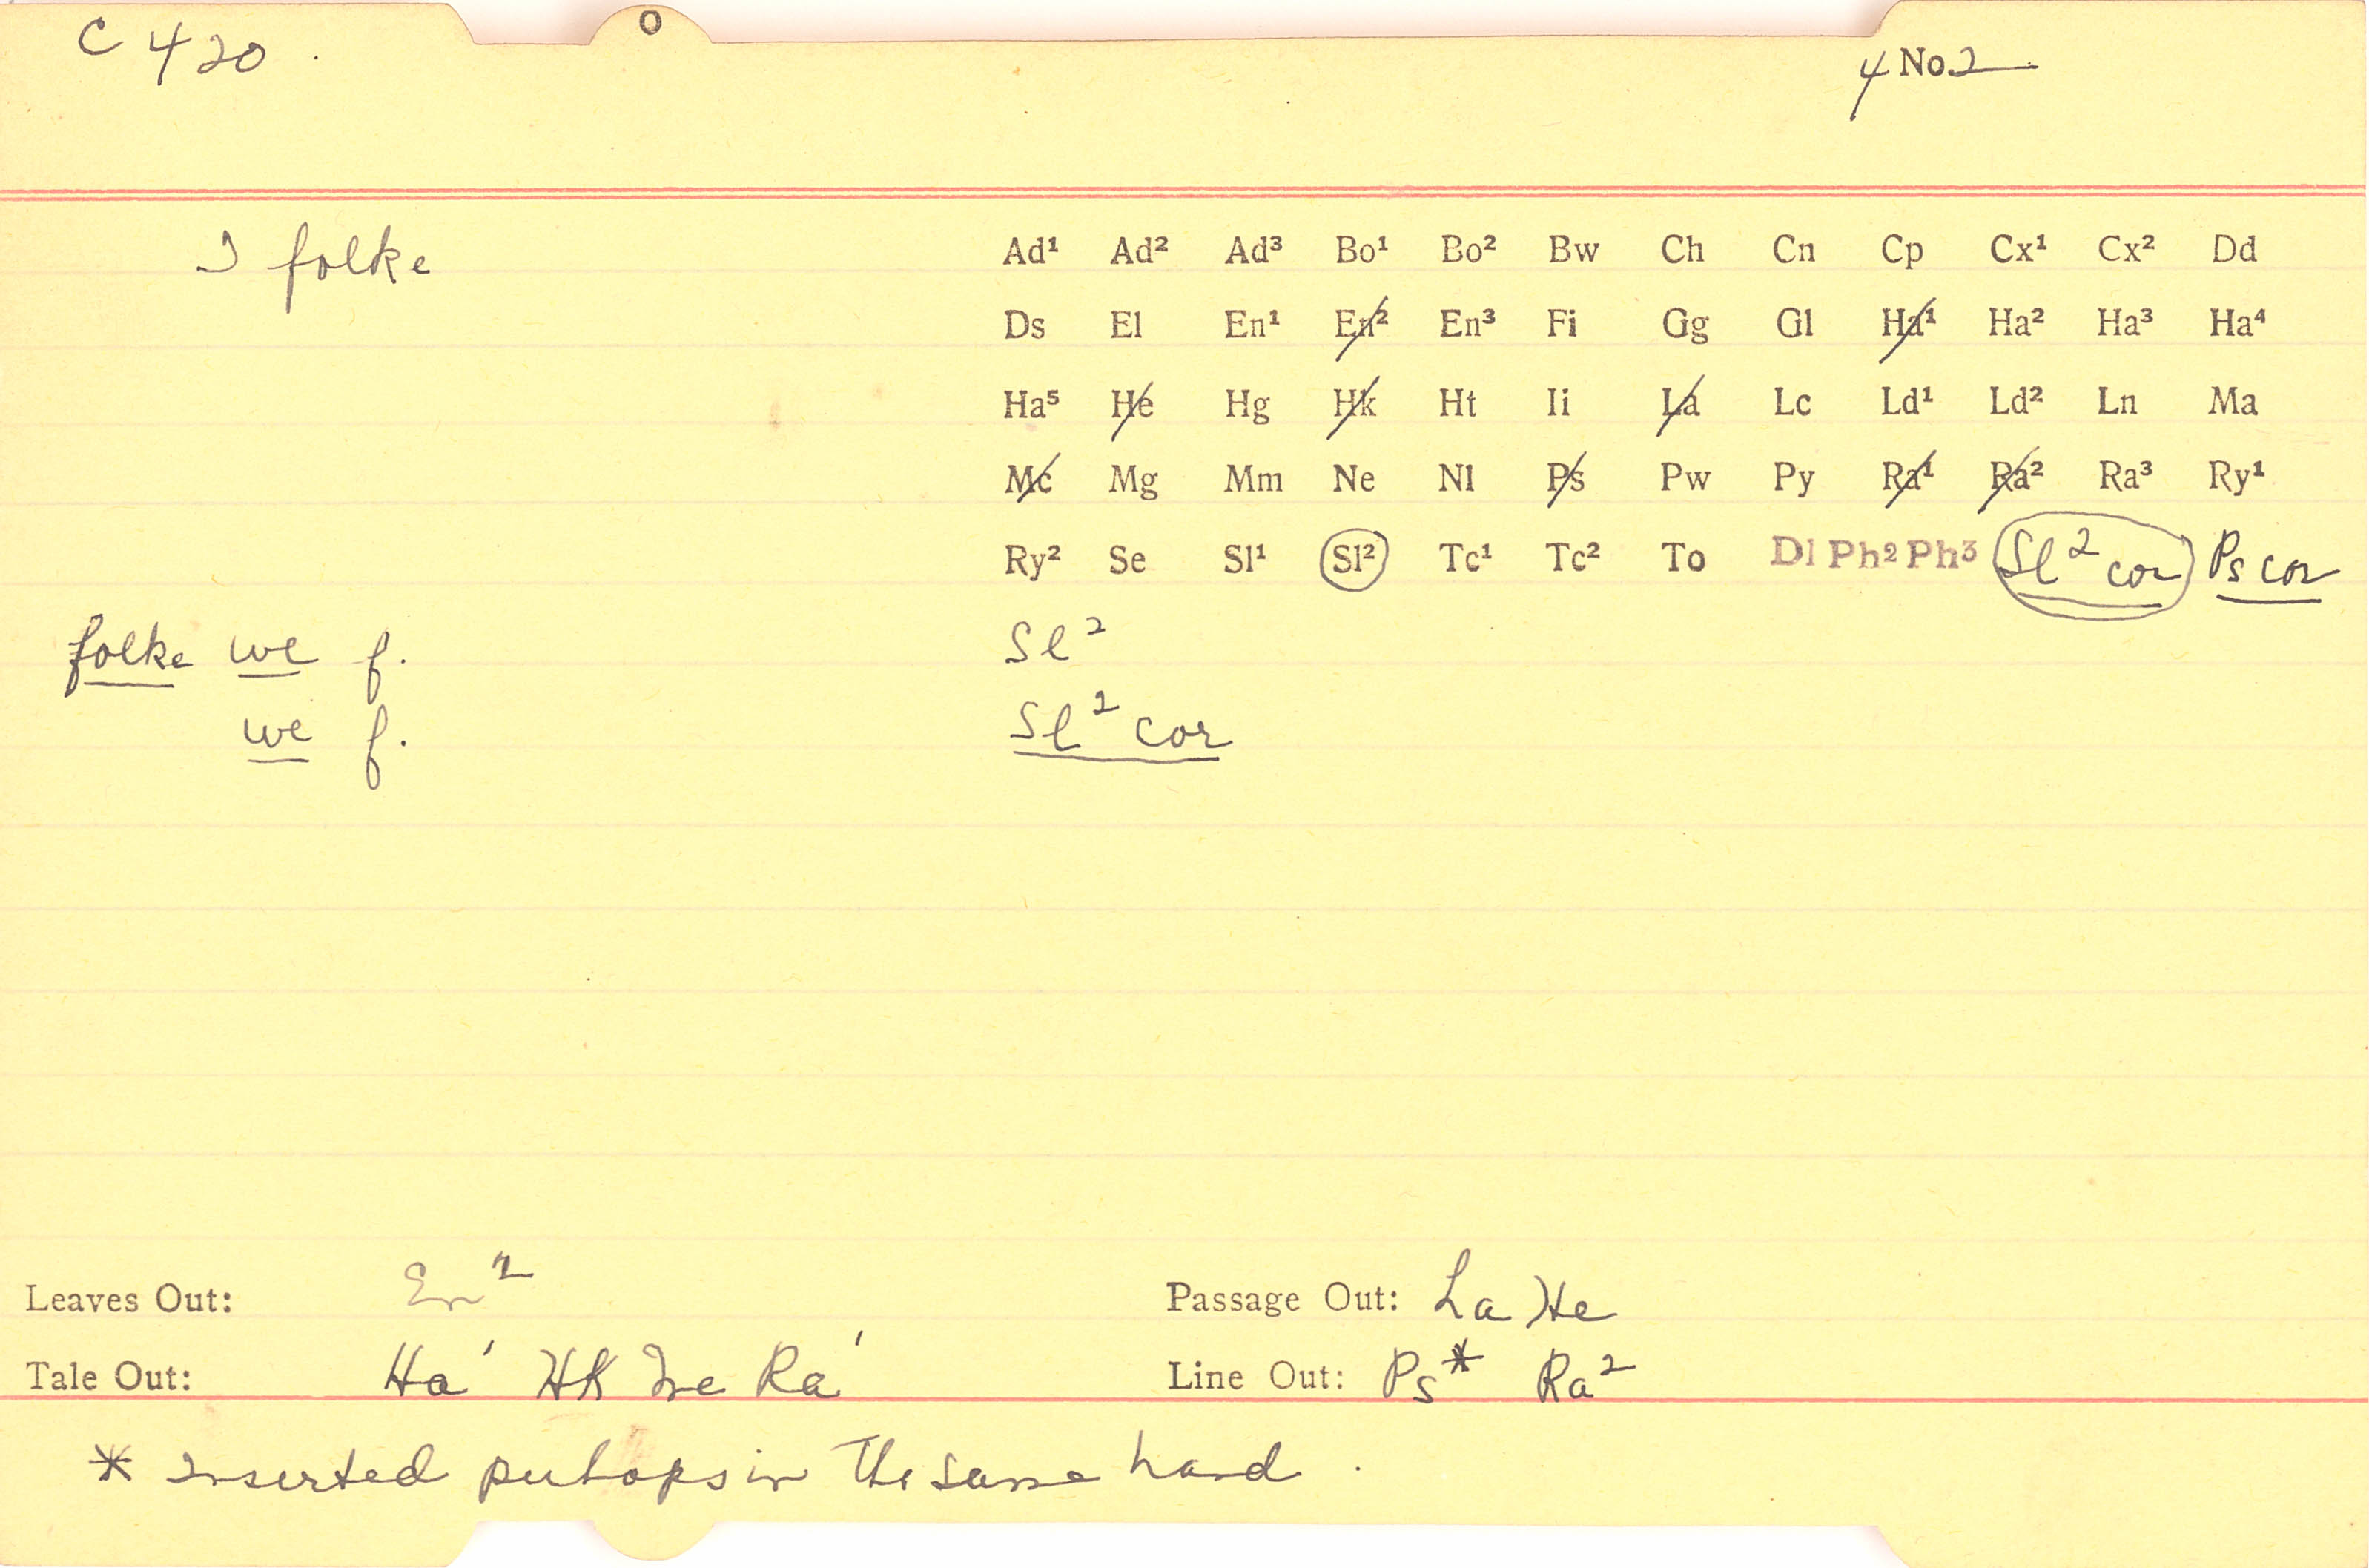 C 420.
4 No 2
I folke
Ad¹ Ad² Ad³ Bo¹ Bo² Bw Ch Cn Cp Cx¹ Cx² Dd
Ds El En¹ En² En³ Fi Gg Gl Ha¹ Ha² Ha³ Ha⁴
Ha⁵ He Hg Hk Ht Ii La Lc Ld¹ Ld² Ln Ma
Mc Mg Mm Ne Nl Ps Pw Py Ra¹ Ra² Ra³ Ry¹
Ry² Se Sl¹ Sl² Tc¹ Tc² To Dl Ph² Ph³ Sl² cor Ps cor
folke we f. Sl²
we f. Sl² cor
Leaves Out: En²
Passage Out: La He
Tale Out: Ha¹ Hk Mc Ra¹
Line Out: Ps* Ra²
* inserted perhaps in the same hand.